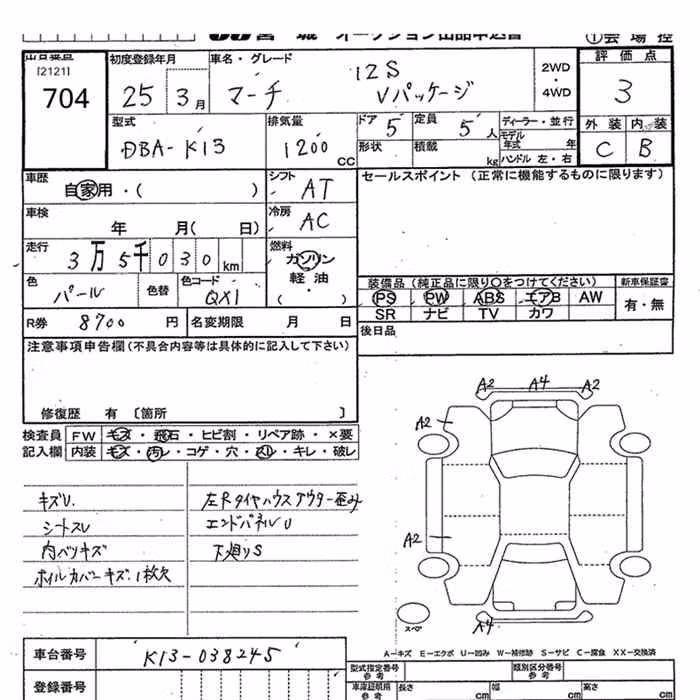 宮 城 オークション出品申込書
①会 場 控
出品番号
[2121]
704
初度登録年月
25 3月
車名・グレード
マーチ
12S
Vパッケージ
2WD
・
4WD
評 価 点
3
外 装 内 装
C B
型式
DBA-K13
排気量
1200 CC
ドア
5
定員
5 人
ディーラー・並行
形状
積載 kg
モデル年式 年
ハンドル 左・右
車歴
自家用・( )
シフト
AT
セールスポイント (正常に機能するものに限ります)
車検
年 月( 日)
冷房
AC
走行
3万5千030km
燃料
ガソリン
軽・油
( ・ )
色
パール
色替
色コード
QX1
装備品 (純正品に限り○をつけてください)
新車保証書
PS PW ABS エアB AW
有・無
SR ナビ TV カワ
R券 8700 円
名変期限 月 日
後日品
注意事項申告欄(不具合内容等は具体的に記入して下さい)
修復歴 有 〔箇所 〕
検査員 FW キズ・飛石・ヒビ割・リペア跡・×要
記入欄 内装 キズ・汚レ・コゲ・穴・スレ・キレ・破レ
キズU.
シートスレ
内ベリキズ
ホイルカバーキズ.1枚欠
左Rタイヤハウスアウター歪み
エンドパネルU
下廻りS
A2 A4 A2
A2
A2
A4
スペア
A-キズ E-エクボ U-凹み W-補修跡 S-サビ C-腐食 XX-交換済
車台番号 K13-038245
登録番号
型式指定番号
参考
類別区分番号
参考
車庫証明用
参考
長さ cm
幅 cm
高さ cm